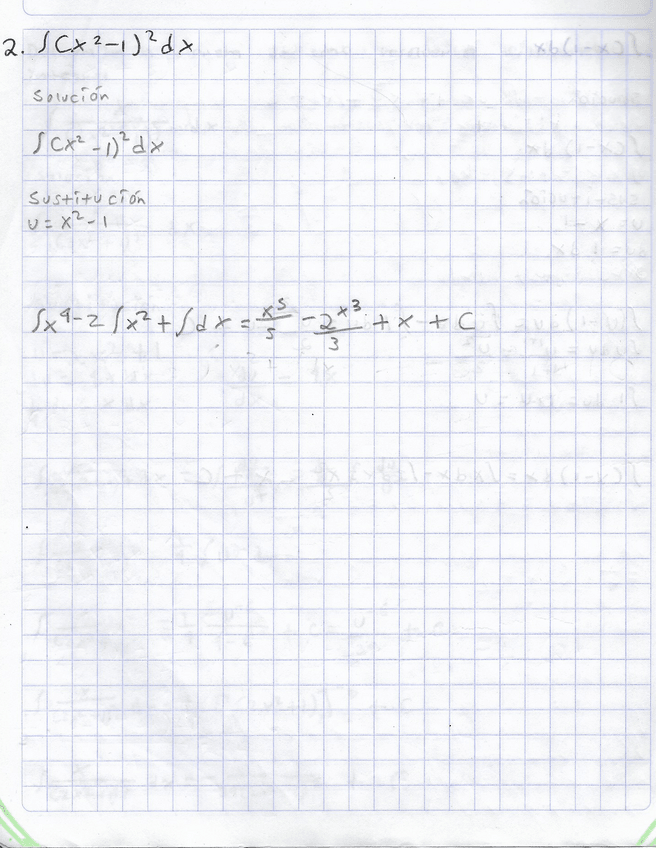 2. ∫(x²-1)²dx
Solución
∫(x²-1)²dx
Sustitución
u = x²-1
∫x⁴-2∫x²+∫dx = x⁵/5 - 2x³/3 + x + C